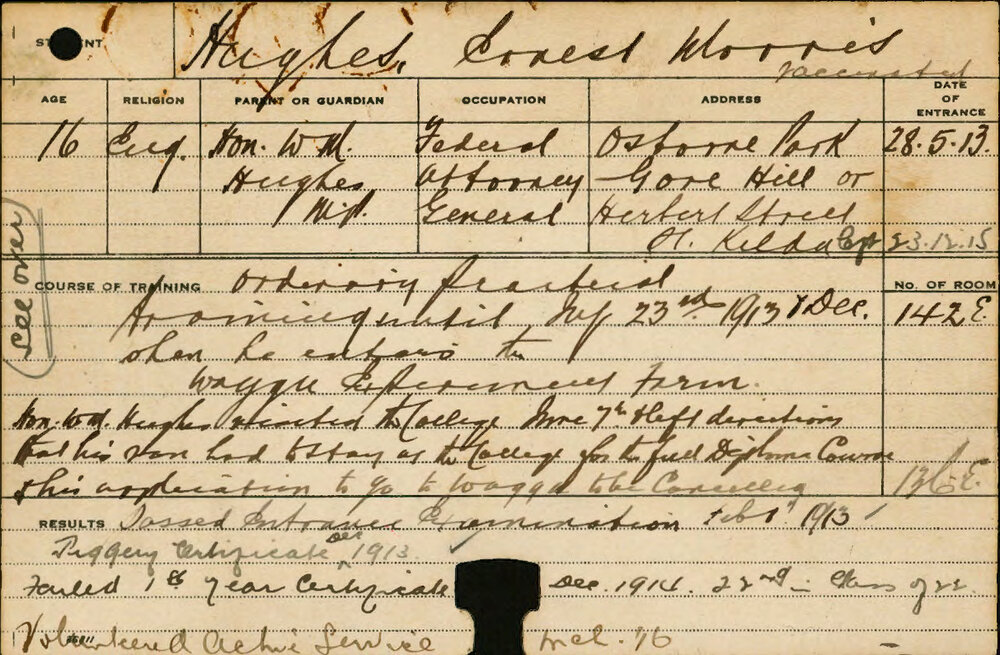 STUDENT Hughes, Ernest Morris
vaccinated
AGE RELIGION PARENT OR GUARDIAN OCCUPATION ADDRESS DATE OF ENTRANCE
16 Eng. Hon. W M. Federal Osborne Park 28.5.13.
Hughes Attorney Gore Hill or
General Herbert Street
St. Kilda 23.12.15
See over
COURSE OF TRAINING Ordinary Practical No. OF ROOM
Training until July 23rd 1913 & Dec. 142 E.
when he enters the
Wagga Experiment Farm.
Hon. W.M. Hughes visited the College June 7th & left directions
that his son had to stay at the College for the full Diploma Course
& his application to go to Wagga to be Cancelled 136 E.
RESULTS Passed Entrance Examination Feb 1913
Piggery Certificate Dec 1913.
Failed 1st Year Certificate Dec. 1914. 22nd in Class of 22.
Volunteered Active Service Mch. '16